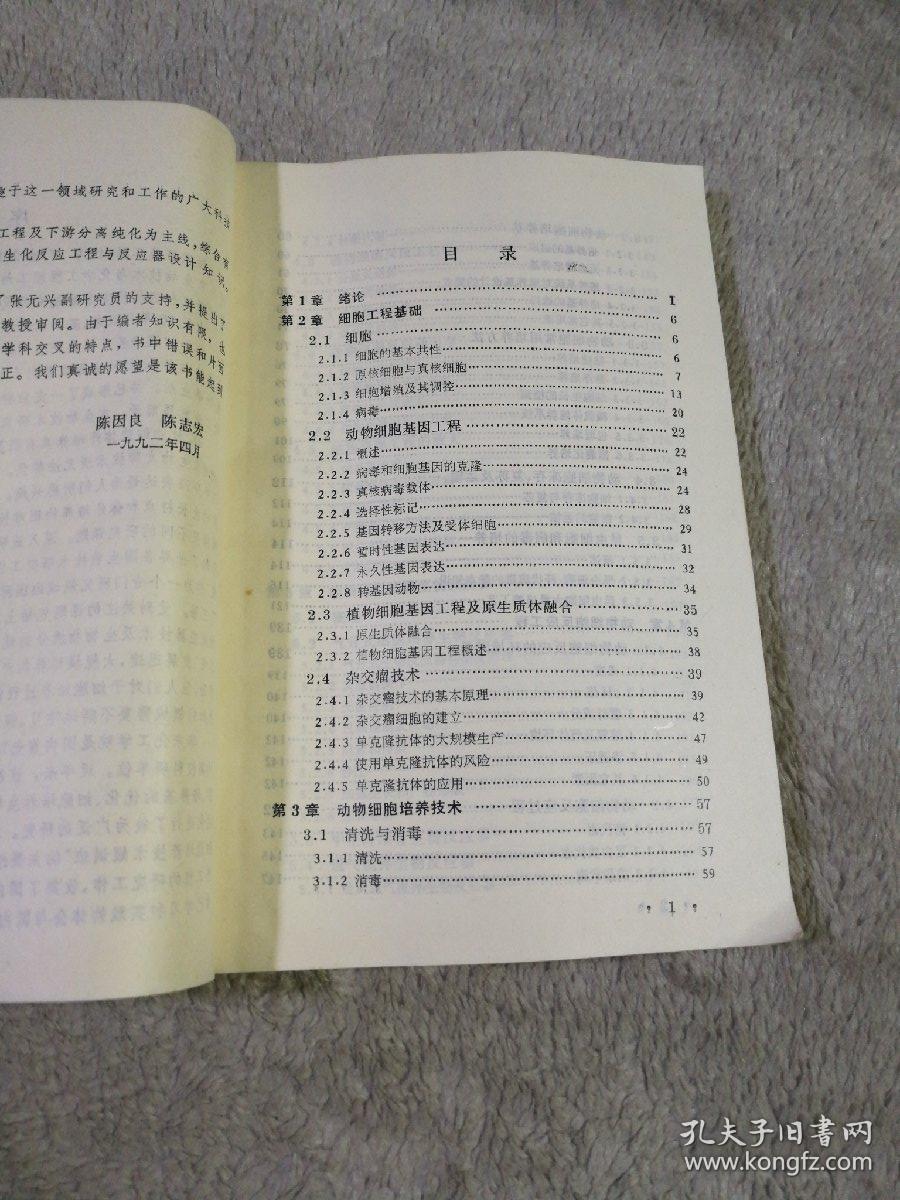 于这一领域研究和工作的广大科技
工程及下游分离纯化为主线,综合有
生化反应工程与反应器设计知识。
了张无兴副研究员的支持,并提出了
教授审阅。由于编者知识有限,也
学科交叉的特点,书中错误和片面
正。我们真诚的愿望是该书能起到
陈因良 陈志宏
一九九二年四月
目录
第1章 绪论 1
第2章 细胞工程基础 6
2.1 细胞 6
2.1.1 细胞的基本共性 6
2.1.2 原核细胞与真核细胞 7
2.1.3 细胞增殖及其调控 13
2.1.4 病毒 20
2.2 动物细胞基因工程 22
2.2.1 概述 22
2.2.2 病毒和细胞基因的克隆 24
2.2.3 真核病毒载体 24
2.2.4 选择性标记 28
2.2.5 基因转移方法及受体细胞 29
2.2.6 暂时性基因表达 31
2.2.7 永久性基因表达 32
2.2.8 转基因动物 34
2.3 植物细胞基因工程及原生质体融合 35
2.3.1 原生质体融合 35
2.3.2 植物细胞基因工程概述 38
2.4 杂交瘤技术 39
2.4.1 杂交瘤技术的基本原理 39
2.4.2 杂交瘤细胞的建立 42
2.4.3 单克隆抗体的大规模生产 47
2.4.4 使用单克隆抗体的风险 49
2.4.5 单克隆抗体的应用 50
第3章 动物细胞培养技术 57
3.1 清洗与消毒 57
3.1.1 清洗 57
3.1.2 消毒 59
• 1 •
孔夫子旧书网
www.kongfz.com